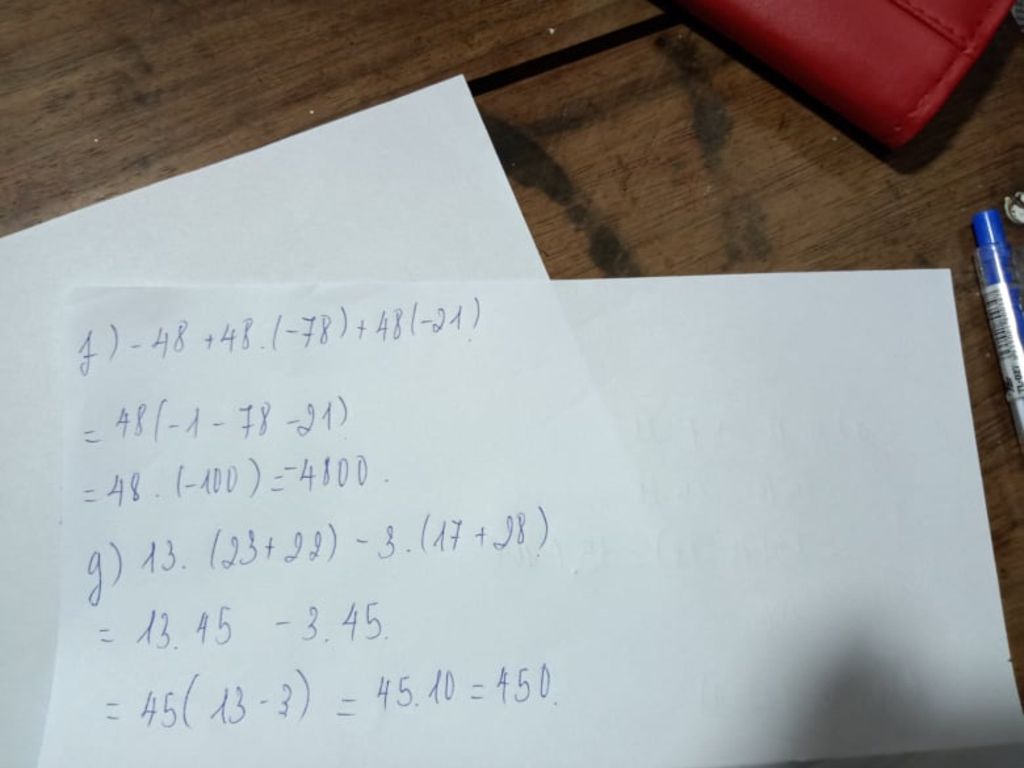 f) - 48 + 48 . (-78) + 48 (-21)
= 48 (-1 - 78 - 21)
= 48 . (-100) = -4800 .
g) 13 . (23 + 22) - 3 . (17 + 28)
= 13 . 45 - 3 . 45 .
= 45 ( 13 - 3 ) = 45 . 10 = 450 .